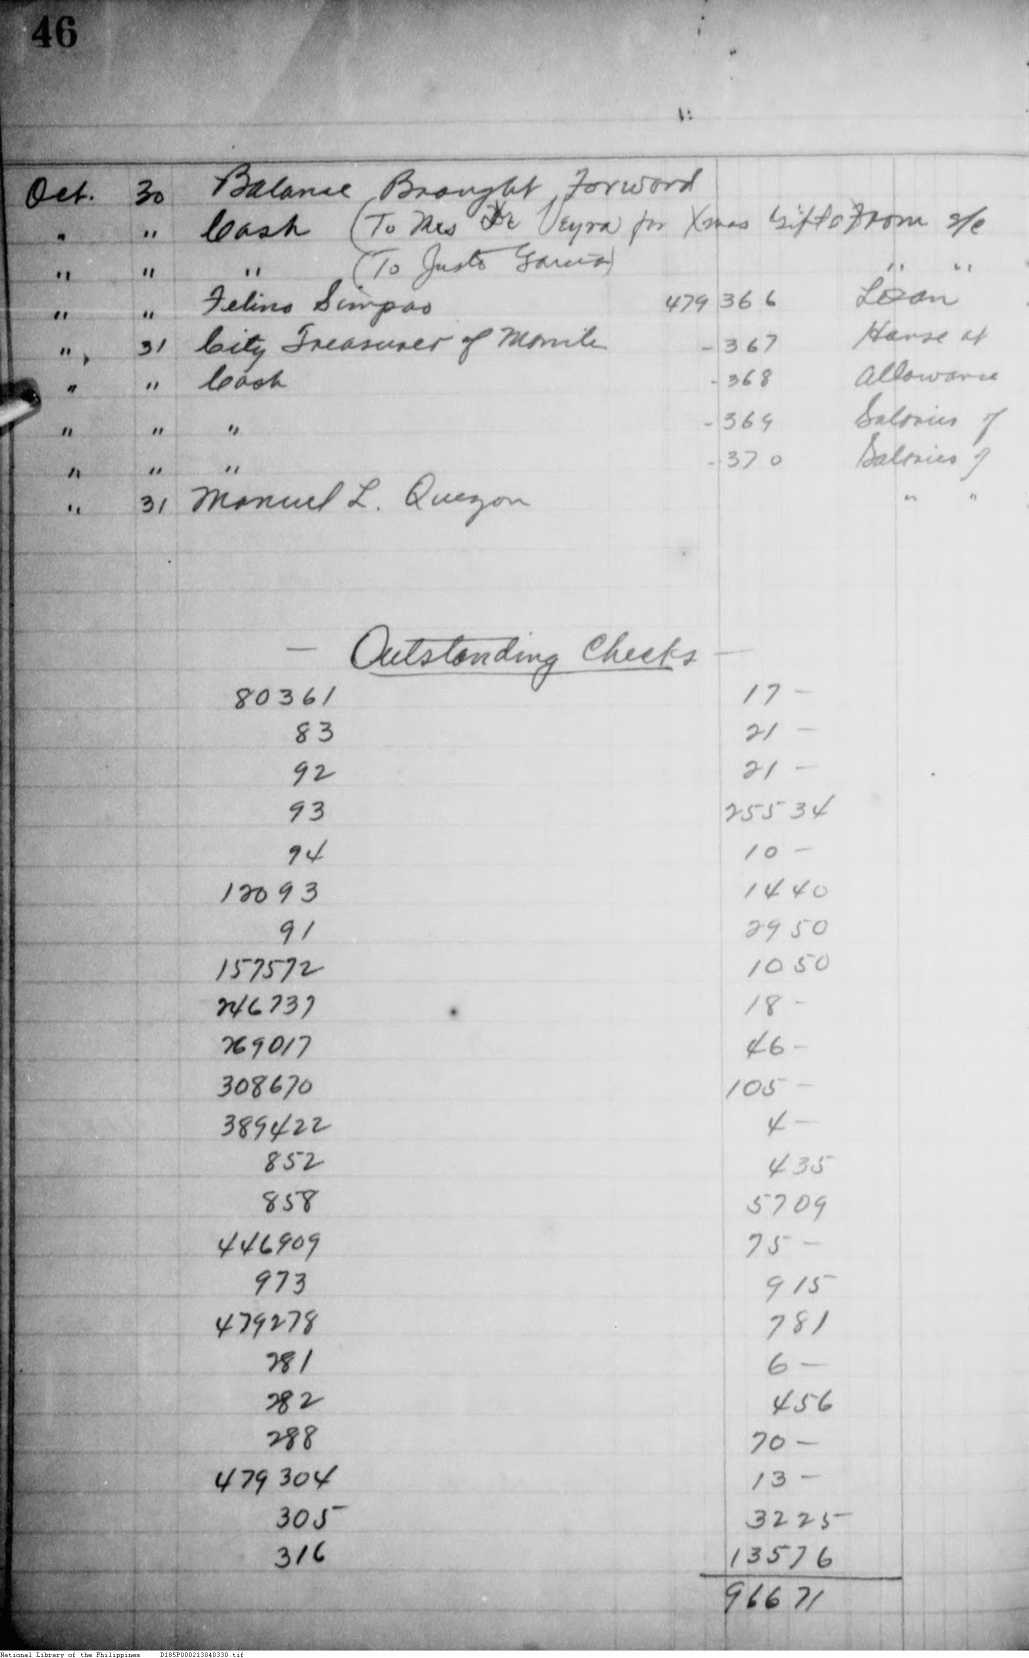 46
Oct. 30 Balance Brought Forword
" " Cash (To Mrs De Veyra for Xmas Gift) From a/c
" " " (To Justo Garcia) " "
" " Felino Simpao 479 366 Loan
" 31 City Treasurer of Manila - 367 House at
" " Cash - 368 Allowance
" " " - 369 Salaries of
" " " - 370 Salaries of
" 31 Manuel L. Quezon " "
— Outstanding Checks —
80361 17 —
83 21 —
92 21 —
93 255 34
94 10 —
12093 14 40
91 29 50
157572 10 50
246737 18 -
269017 46 -
308670 105 —
389422 4 —
852 4 35
858 57 09
446909 75 —
973 9 15
479278 7 81
281 6 —
282 4 56
288 70 —
479304 13 —
305 32 25
316 135 76
966 71
National Library of the Philippines D185P000213040330.tif